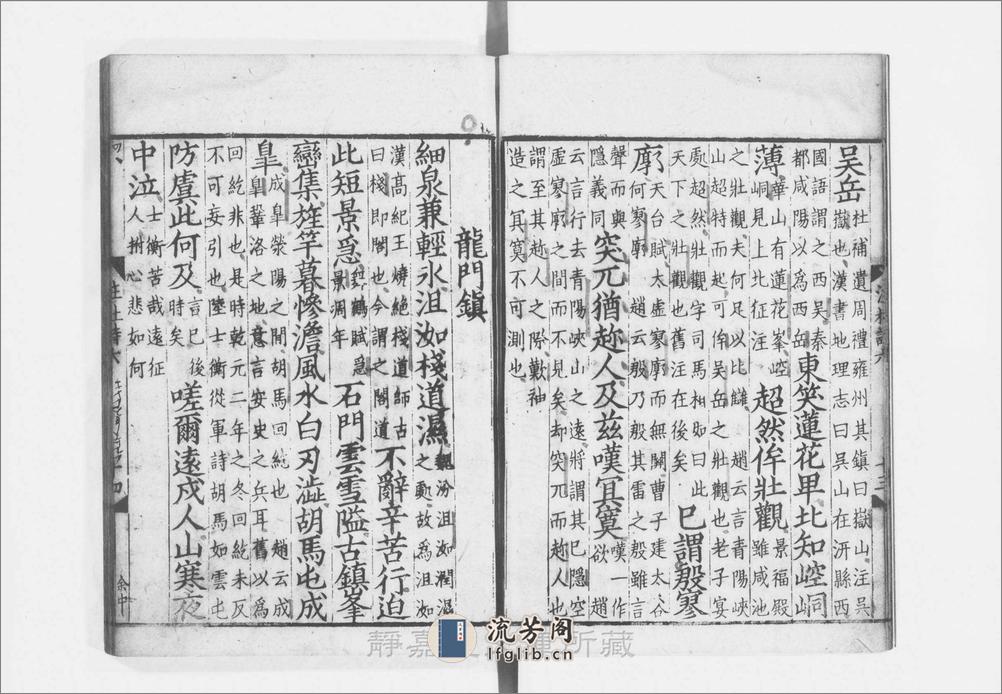 吳岳杜補遺周禮雍州其鎮曰嶽山注吳
嶽也漢書地理志曰吳山在汧縣西
國語謂之西吳秦
都咸陽以為西岳東笑蓮花卑北知崆峒
薄華山有蓮花峯崆
峒見上北征注超然侔壯觀景福殿
雖咸池
之壯觀夫何足以比讎 趙云言青陽峽
山超特而起可侔吳岳之壯觀也老子宴
處超然壯觀字司馬相如曰此
天下之壯觀也舊注在後矣已謂殷寥
廓天台賦太虛寥廓而無閡曹子建太谷
何寥廓 趙云殷乃殷其雷之殷雖言
聲而與
隱義同突兀猶趂人及茲嘆冥寞嘆一作
欲 趙
云言行去青陽峽山之遠將謂其已隱空
虛寥廓之間而不見矣却突兀而趂人也
謂至其趂人之際歎神
造之冥寞不可測也
龍門鎮
細泉兼輕冰沮洳棧道濕魏汾沮洳潤濕
之動故為沮洳
漢高紀王燒絕棧道師古
曰棧即閣也今謂之閣道不辭辛苦行迫
此短景急舞鶴賦急
景凋年石門雲雪隘古鎮峯
巒集旌竿暮慘澹風水白刃澁胡馬屯成
皐成皐滎陽之間胡馬回紇也 趙云成
皐鞏洛之地意言安史之兵耳舊以為
回紇非也是時乾元二年之冬回紇未反
不可妄引也陸士衡從軍詩胡馬如雲屯
防虞此何及言已後
時矣嗟爾遠戍人山寒夜
中泣士衡苦哉遠征
人拊心悲如何
余中
流芳阁
lfglib.cn
靜嘉
所藏